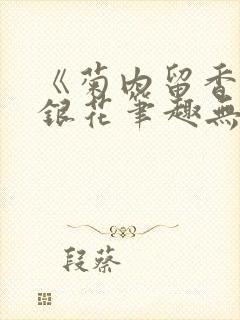 《菊内留香
銀花筆趣無
段蔡